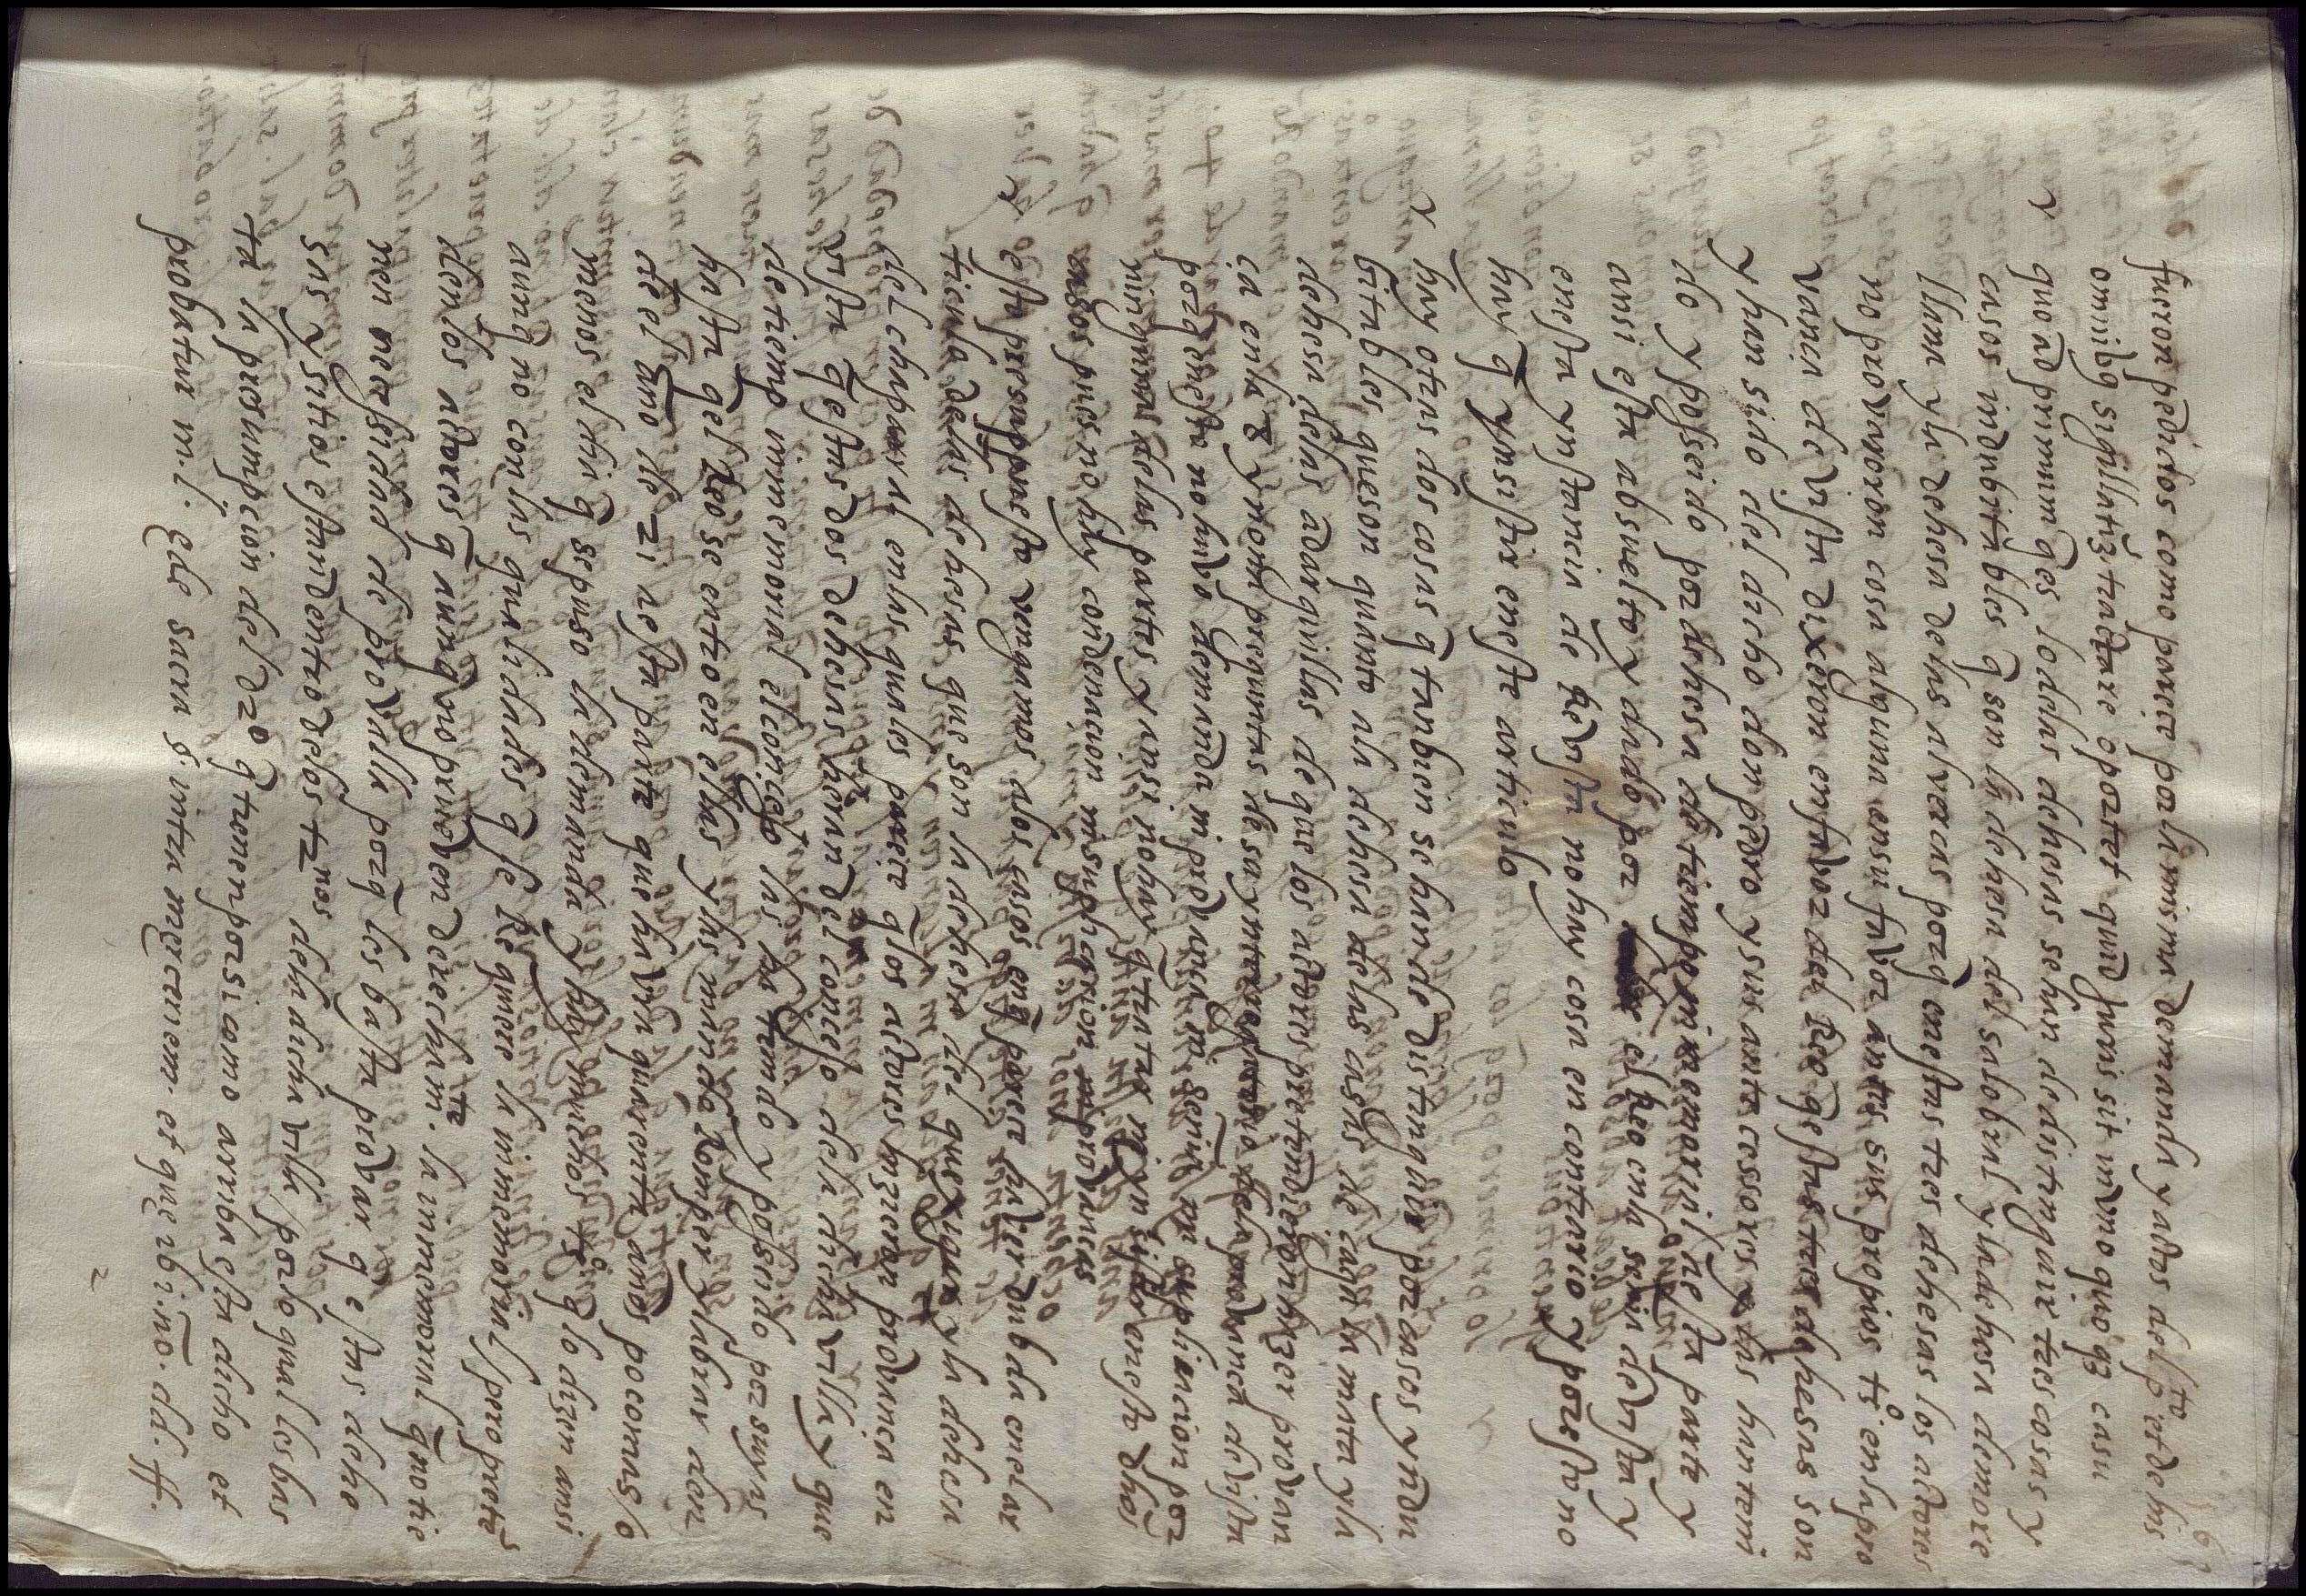 fueron pedidos como parece por la misma demanda y actos del pto et de his
omnibus sigillatim tractare oportet quid juris sit in vno quoqz casu
quo ad primum ques lo delas dehesas se han de distinguir tres cosas y
casos indubitables q son la dehesa del salobral y la dehesa de more
llana y la dehesa delas alvercas porq en estas tres dehesas los actores
no provaron cosa alguna en su favor antes sus propios tos en la pro
vança de vista dixeron en favor del Reo q estas tres dehesas son
y han sido del dicho don pedro y sus antecessores y las han teni
do y posseido por dehesa de tiempo inmemorial a esta parte y
ansi esta absuelto y dado por el Reo en la senia de vista y
en esta ynstancia de Revista no hay cosa en contrario y por esto no
hay q ynsistir en este articulo
hay otras dos cosas q tanbien se han de distinguir por casos yndu
bitables que son quanto ala dehesa delas casas de caga la mata y la
dehesa delas adarguillas de que los actores pretendieron hazer provan
ça en la 8 y nona preguntas de su ynterrogatorio dela provança de vista
porq en esto no huvo demanda ni provança ni senia ni suplicacion por
ninguna delas partes y ansi no hay q tratar ni ynsistir en esto dhos
casos pues no hay condenacion ni suplicacion ni provanças
esto presupuesto vengamos alos casos en q parece haver dubda en el ar
ticulo delas dehesas que son la dehesa del quexigar y la dehesa
del chaparral en las quales parece q los actores hizieron provança en
vista q estas dos dehesas heran del concejo dela dicha villa y que
de tiempo inmemorial el concejo las ha tenido y poseido por suyas
hasta q el Reo se entro en ellas y las mando Romper y labrar den
de el año de 21 a esta parte que havra quarenta años poco mas o
menos el dia q se puso la demanda y hay muchos tos q lo dizen ansi
aunq no con las qualidades q se Requiere la inmemorial pero prete
den los actores q aunq no prueven derecham.te la inmemorial q no tie
nen necesidad de provalla porq les basta provar q estas dehe
sas y sitios estan dentro delos trnos dela dicha villa por lo qual les bas
ta la presumpcion del dro q tienen por si como arriba esta dicho et
probatur in. l. ede sacra §. intra mercenem. et que ibi. no. dd. ff.